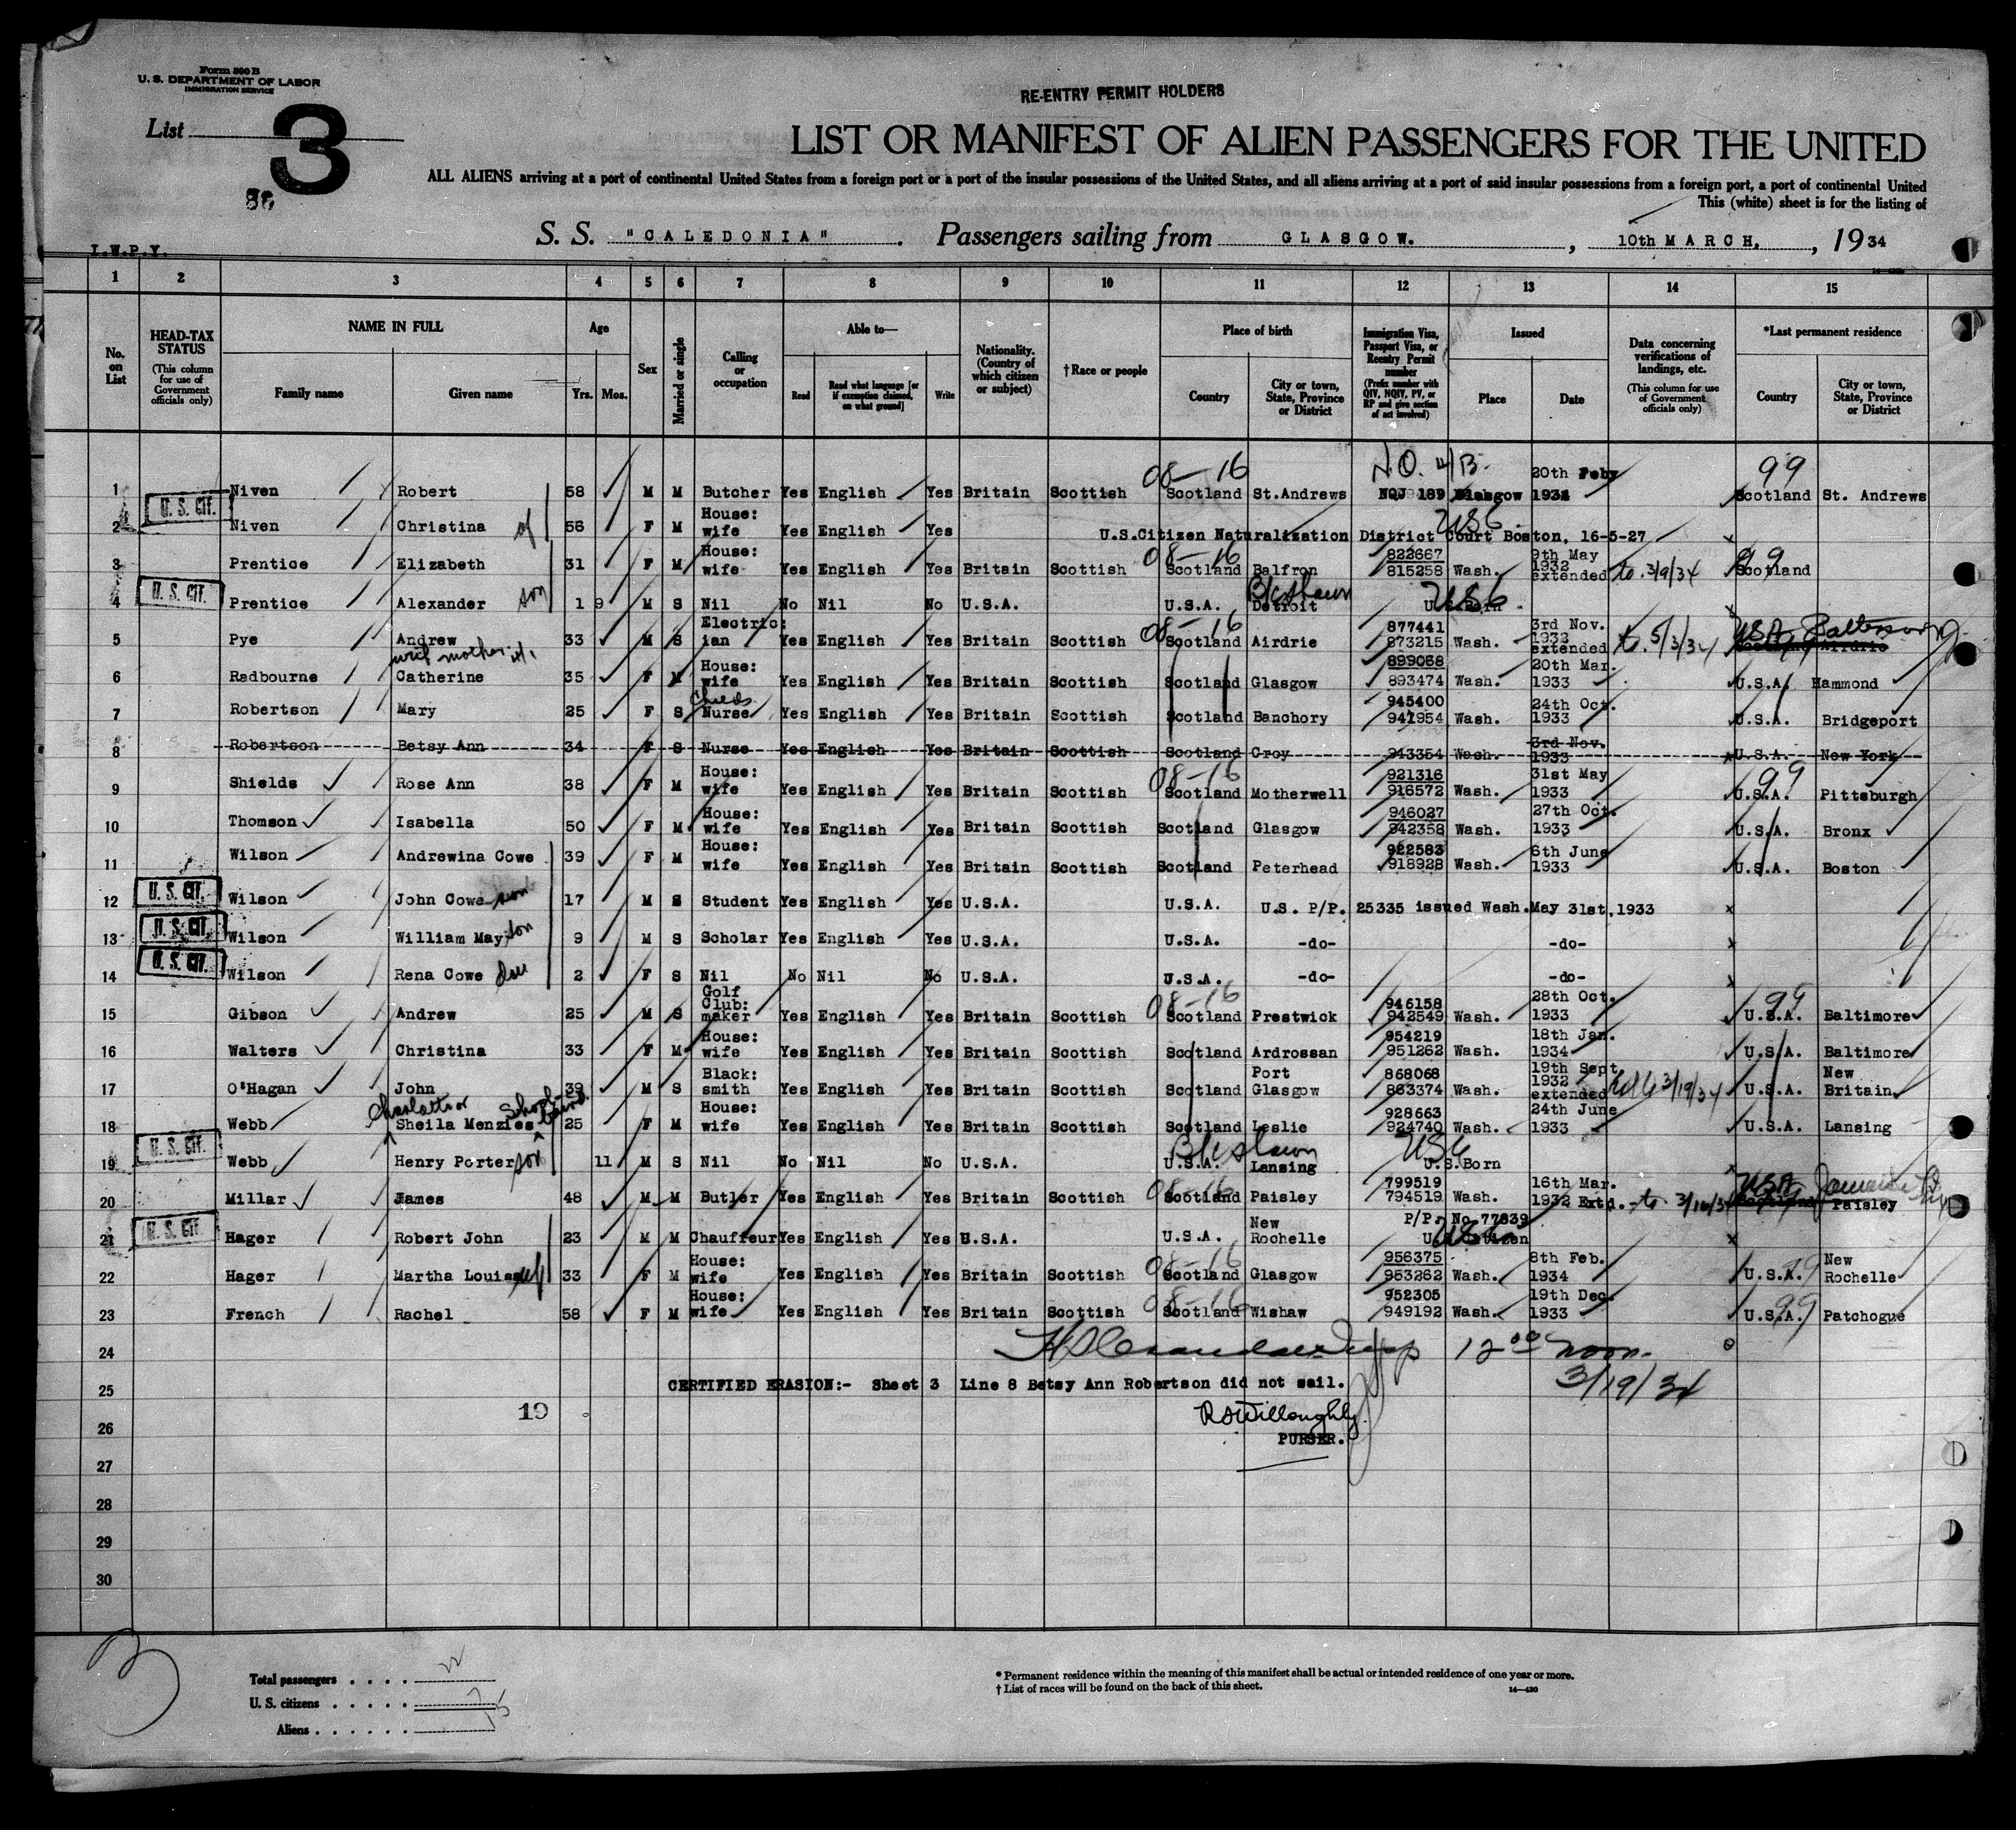 Form 500 B
U. S. DEPARTMENT OF LABOR
IMMIGRATION SERVICE
RE-ENTRY PERMIT HOLDERS
List 3
LIST OR MANIFEST OF ALIEN PASSENGERS FOR THE UNITED
ALL ALIENS arriving at a port of continental United States from a foreign port or a port of the insular possessions of the United States, and all aliens arriving at a port of said insular possessions from a foreign port, a port of continental United
This (white) sheet is for the listing of
S. S. "CALEDONIA". Passengers sailing from GLASGOW. , 10th MARCH, , 1934
I.W.P.Y.
1 2 3 4 5 6 7 8 9 10 11 12 13 14 15
No. on List
HEAD-TAX STATUS (This column for use of Government officials only)
NAME IN FULL Family name Given name
Age Yrs. Mos.
Sex
Married or single
Calling or occupation
Able to— Read Read what language [or if exemption claimed, on what ground] Write
Nationality. (Country of which citizen or subject)
†Race or people
Place of birth Country City or town, State, Province or District
Immigration Visa, Passport Visa, or Reentry Permit number (Prefix number with QIV, NQIV, PV, or RP and give section of act involved)
Issued Place Date
Data concerning verifications of landings, etc. (This column for use of Government officials only)
*Last permanent residence Country City or town, State, Province or District
08-16 99
1 Niven Robert 58 M M Butcher Yes English Yes Britain Scottish Scotland St.Andrews 189 Glasgow 20th Feby 1934 Scotland St. Andrews
2 U. S. CIT. Niven Christina 56 F M House: wife Yes English Yes U.S.Citizen Naturalization District Court Boston, 16-5-27 USC
3 Prentice Elizabeth 31 F M House: wife Yes English Yes Britain Scottish 08-16 Scotland Balfron 822667 815258 Wash. 9th May 1932 extended to 3/9/34 99 Scotland
4 U. S. CIT. Prentice Alexander son 1 9 M S Nil No Nil No U.S.A. U.S.A. Detroit U.S. Born USC
5 Pye Andrew 33 M S Electric: ian Yes English Yes Britain Scottish 08-16 Scotland Airdrie 877441 873215 Wash. 3rd Nov. 1932 extended to 5/3/34 USA Scotland Airdrie
6 Radbourne Catherine 35 F M House: wife Yes English Yes Britain Scottish Scotland Glasgow 899068 893474 Wash. 20th Mar. 1933 U.S.A. Hammond
7 Robertson Mary 25 F S Childs Nurse Yes English Yes Britain Scottish Scotland Banchory 945400 941954 Wash. 24th Oct. 1933 U.S.A. Bridgeport
8 Robertson Betsy Ann 34 F S Nurse Yes English Yes Britain Scottish Scotland Croy 943354 Wash. 3rd Nov. 1933 U.S.A. New York
9 Shields Rose Ann 38 F M House: wife Yes English Yes Britain Scottish 08-16 Scotland Motherwell 921316 916572 Wash. 31st May 1933 99 U.S.A. Pittsburgh
10 Thomson Isabella 50 F M House: wife Yes English Yes Britain Scottish Scotland Glasgow 946027 942358 Wash. 27th Oct. 1933 U.S.A. Bronx
11 Wilson Andrewina Cowe 39 F M House: wife Yes English Yes Britain Scottish Scotland Peterhead 922583 918928 Wash. 6th June 1933 U.S.A. Boston
12 U. S. CIT. Wilson John Cowe son 17 M S Student Yes English Yes U.S.A. U.S.A. U.S. P/P. 25335 issued Wash.May 31st,1933
13 U. S. CIT. Wilson William May son 9 M S Scholar Yes English Yes U.S.A. U.S.A. -do- -do-
14 U. S. CIT. Wilson Rena Cowe dau 2 F S Nil No Nil No U.S.A. U.S.A. -do- -do-
15 Gibson Andrew 25 M S Golf Club: maker Yes English Yes Britain Scottish 08-16 Scotland Prestwick 946158 942549 Wash. 28th Oct. 1933 99 U.S.A. Baltimore
16 Walters Christina 33 F M House: wife Yes English Yes Britain Scottish Scotland Ardrossan 954219 951262 Wash. 18th Jan. 1934 U.S.A. Baltimore
17 O'Hagan John 39 M S Black: smith Yes English Yes Britain Scottish Scotland Port Glasgow 868068 863374 Wash. 19th Sept 1932 extended 3/19/34 U.S.A. New Britain
18 Webb Sheila Menzies 25 F M House: wife Yes English Yes Britain Scottish Scotland Leslie 928663 924740 Wash. 24th June 1933 U.S.A. Lansing
19 U. S. CIT. Webb Henry Porter son 11 M S Nil No Nil No U.S.A. U.S.A. Lansing U.S.Born USC
20 Millar James 48 M M Butler Yes English Yes Britain Scottish 08-16 Scotland Paisley 799519 794519 Wash. 16th Mar. 1932 Extd. to 3/16/34 USA Scotland Paisley
21 U. S. CIT. Hager Robert John 23 M M Chauffeur Yes English Yes U.S.A. U.S.A. New Rochelle P/P. No.77839 U.S.Citizen
22 Hager Martha Louise 33 F M House: wife Yes English Yes Britain Scottish 08-16 Scotland Glasgow 956375 953262 Wash. 8th Feb. 1934 U.S.A. New Rochelle
23 French Rachel 58 F M House: wife Yes English Yes Britain Scottish 08-16 Scotland Wishaw 952305 949192 Wash. 19th Dec. 1933 99 U.S.A. Patchogue
24 12 00 noon
25 CERTIFIED ERASION:- Sheet 3 Line 8 Betsy Ann Robertson did not sail. 3/19/34
19
26 R S Willoughby
PURSER.
27
28
29
30
Total passengers . . . . 22
U. S. citizens . . . . . 7
Aliens . . . . . . 15
* Permanent residence within the meaning of this manifest shall be actual or intended residence of one year or more.
† List of races will be found on the back of this sheet.
14—430